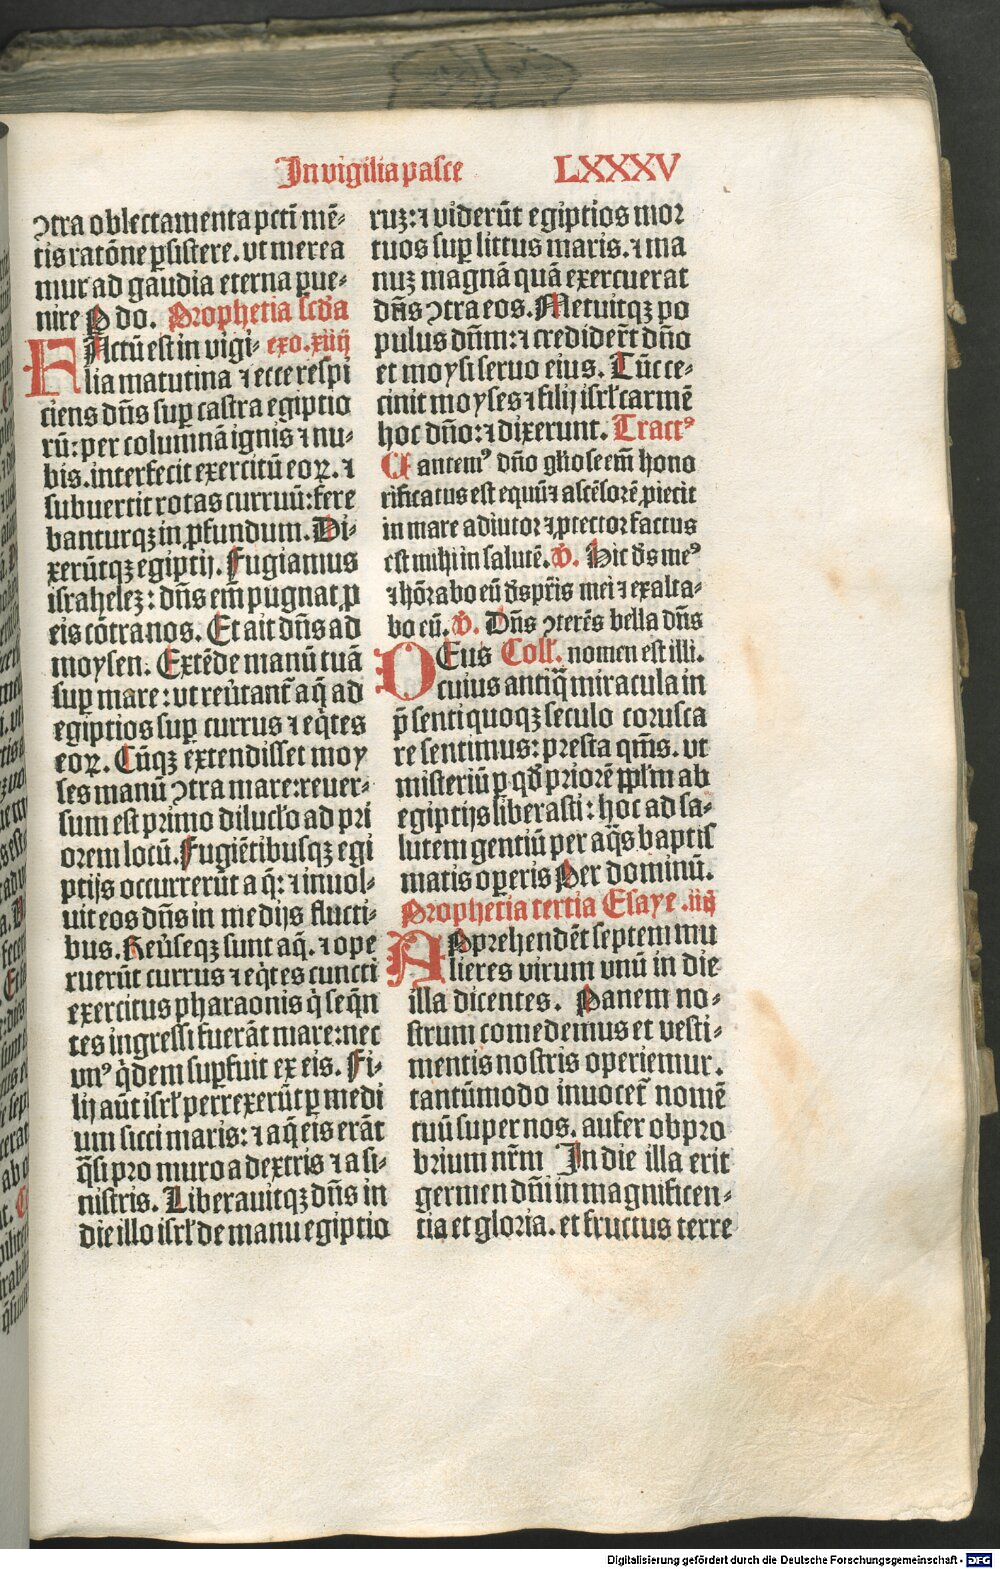 In vigilia pasce LXXXV
ↄtra oblectamenta pctī mē-
tis ratōne ꝑsistere. vt merea
mur ad gaudia eterna ꝑue-
nire P do. Prophetia scďa
FActū est in vigi- exo. xiiij
lia matutina ⁊ ecce respi
ciens dn̄s suꝑ castra egiptio
rū: per columnā ignis ⁊ nu-
bis. interfecit exercitū eoꝝ. ⁊
subuertit rotas curruū: fere
banturqꝫ in ꝓfundum. Di-
xerūtqꝫ egiptij. Fugiamus
israhelez: dn̄s em̄ pugnat ꝓ
eis cōtra nos. Et ait dn̄s ad
moysen. Extēde manū tuā
suꝑ mare: vt reu̓tant̃ aq̄ ad
egiptios suꝑ currus ⁊ eq̇tes
eoꝝ. Cūqꝫ extendisset moy
ses manū ↄtra mare: reuer-
sum est primo dilucl̓o ad pri
orem locū. Fugiētibusqꝫ egi
ptijs occurrerūt aq̄: ⁊ inuol-
uit eos dn̄s in medijs flucti-
bus. Reu̓seqꝫ sunt aq̄. ⁊ ope
ruerūt currus ⁊ eq̇tes cuncti
exercitus pharaonis q̇ seq̄n
tes ingressi fuerāt mare: nec
vnꝰ q̇dem suꝑfuit ex eis. Fi-
lij aūt isrl̓ perrexerūt ꝑ medi
um sicci maris: ⁊ aq̄ eis erāt
q̄si pro muro a dextris ⁊ a si-
nistris. Liberauitqꝫ dn̄s in
die illo isrl̓ de manu egiptio
ruꝫ: ⁊ viderūt egiptios mor
tuos suꝑ littus maris. ⁊ ma
nuꝫ magnā quā exercuerat
dn̄s ↄtra eos. Metuitqꝫ po
pulus dn̄m: ⁊ credider̄t dn̄o
et moysi seruo eius. Tūc ce-
cinit moyses ⁊ filij isrl̓ carmē
hoc dn̄o: ⁊ dixerunt. Tractꝰ
Cantemꝰ dn̄o gl̓iose em̄ hono
rificatus est equū ⁊ ascēsorē ꝓiecit
in mare adiutor ⁊ ꝓtector factus
est mihi in salutē. V̄. Hic ds̄ meꝰ
⁊ hōrabo eū ds̄ pr̄is mei ⁊ exalta-
bo eū. V̄. Dn̄s ↄterēs bella dn̄s
DEus Coll̓. nomen est illi.
cuius antiq̄ miracula in
p̄senti quoqꝫ seculo corusca
re sentimus: presta qm̄s. vt
misteriū ꝑ qď priorē ppl̓m ab
egiptijs liberasti: hoc ad sa-
lutem gentiū per aq̄s baptis
matis oꝑeris Per dominū.
Prophetia tertia Esaye .iiij
APprehendēt septem mu
lieres virum vnū in die
illa dicentes. Panem no-
strum comedemus et vesti-
mentis nostris operiemur.
tantūmodo inuocet̃ nomē
tuū super nos. aufer obpro
brium nr̄m In die illa erit
germen dn̄i in magnificen-
tia et gloria. et fructus terre
Digitalisierung gefördert durch die Deutsche Forschungsgemeinschaft - DFG